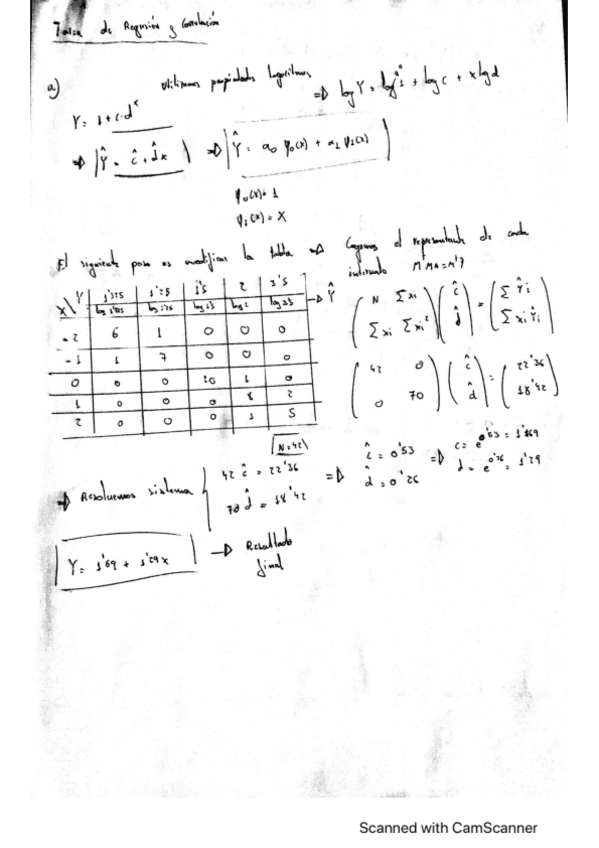 Tarea de Regresión y Correlación
a)
Utilizamos propiedades logaritmos
Y = 1 + c·d^x
⇒ log Y = log 1 + log c + x log d
⇒ Ŷ = ĉ + d̂x ⇒ Ŷ = a₀ φ₀(x) + a₁ φ₁(x)
φ₀(x) = 1
φ₁(x) = X
El siguiente paso es modificar la tabla ⇒ Cogemos el representante de cada
intervalo
X\Y 1'125 1'25 1'5 2 3'5
log 1'125 log 1'25 log 1'5 log 2 log 3'5 → Ŷ
-2 6 1 0 0 0
-1 1 7 0 0 0
0 0 0 10 1 0
1 0 0 0 8 2
2 0 0 0 1 5
( N Σxi ; Σxi Σxi² ) ( ĉ ; d̂ ) = ( ΣŶi ; ΣxiŶi )
( 42 0 ; 0 70 ) ( ĉ ; d̂ ) = ( 22'36 ; 18'42 )
N = 42
⇒ Resolvemos sistema { 42 ĉ = 22'36 ; 70 d̂ = 18'42
⇒ ĉ = 0'53 ; d̂ = 0'26
⇒ c = e^0'53 = 1'69 ; d = e^0'26 = 1'29
Y = 1'69 + 1'29x → Resultado
final
Scanned with CamScanner